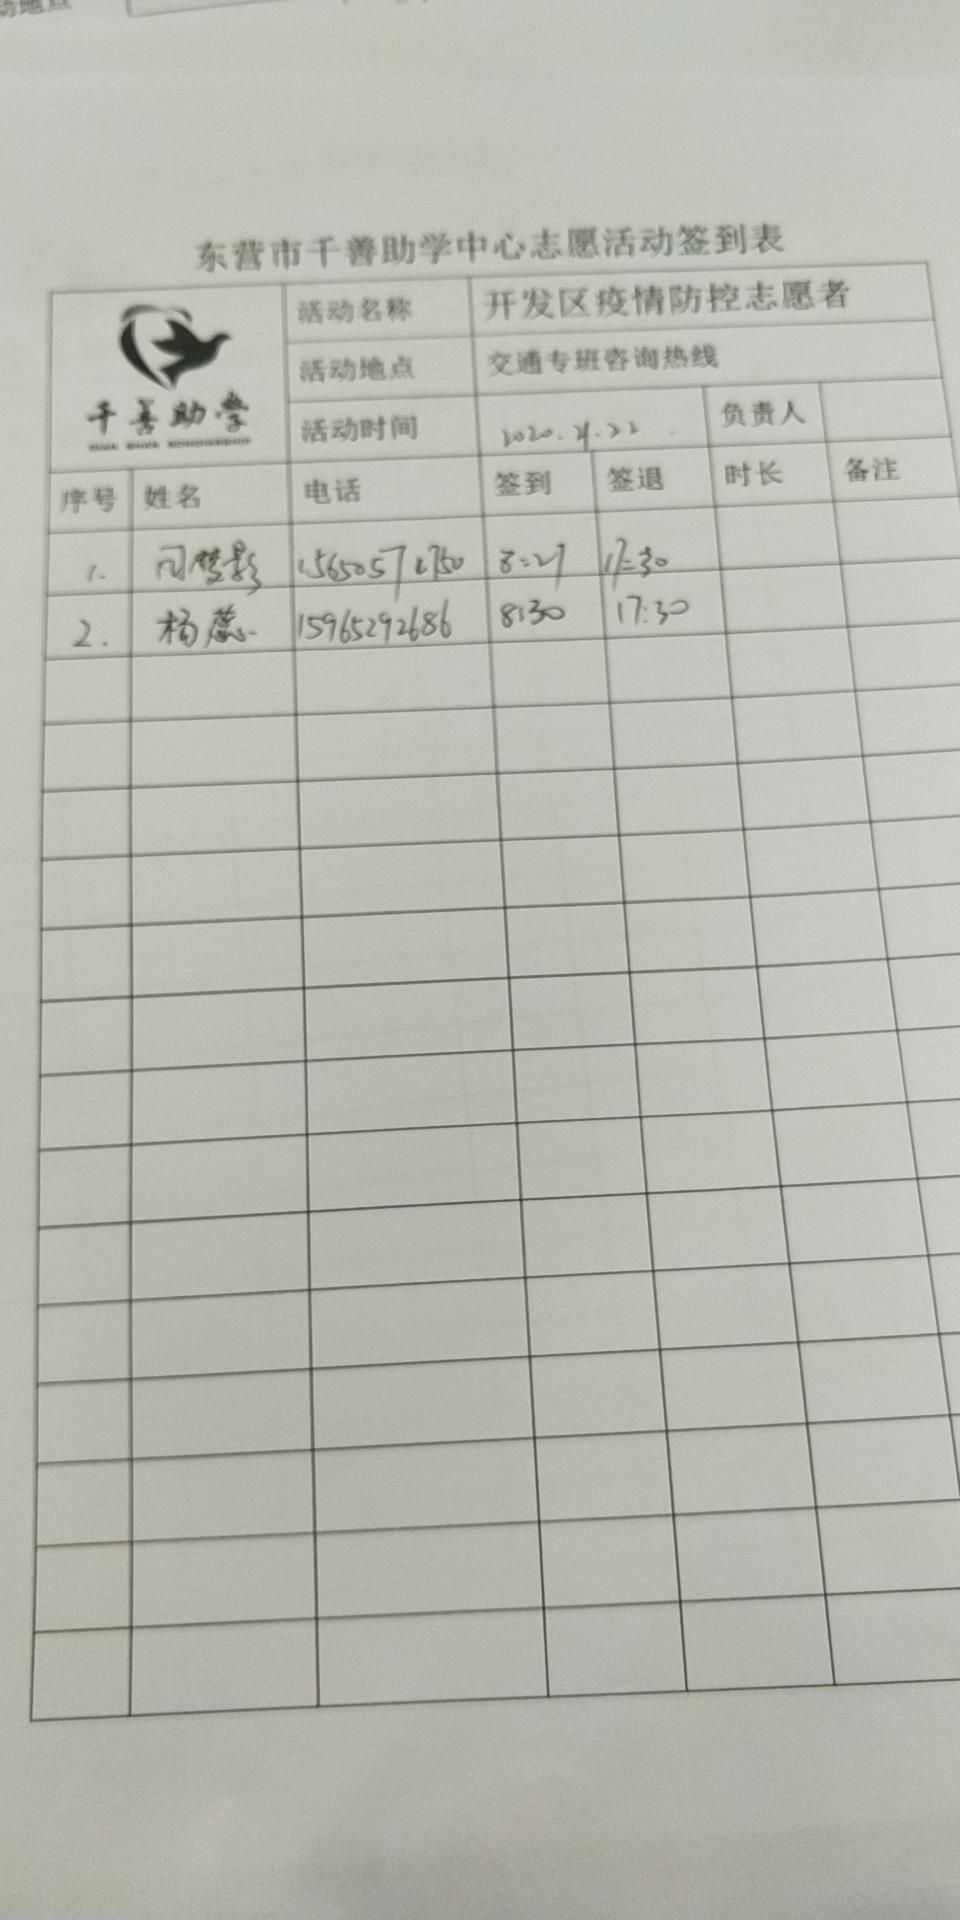 动地点
东营市千善助学中心志愿活动签到表
千善助学
活动名称 开发区疫情防控志愿者
活动地点 交通专班咨询热线
活动时间 2020.4.22 负责人
序号 姓名 电话 签到 签退 时长 备注
1. 闫梦影 8:27 17:30
2. 杨蕊 15965292686 8:30 17:30